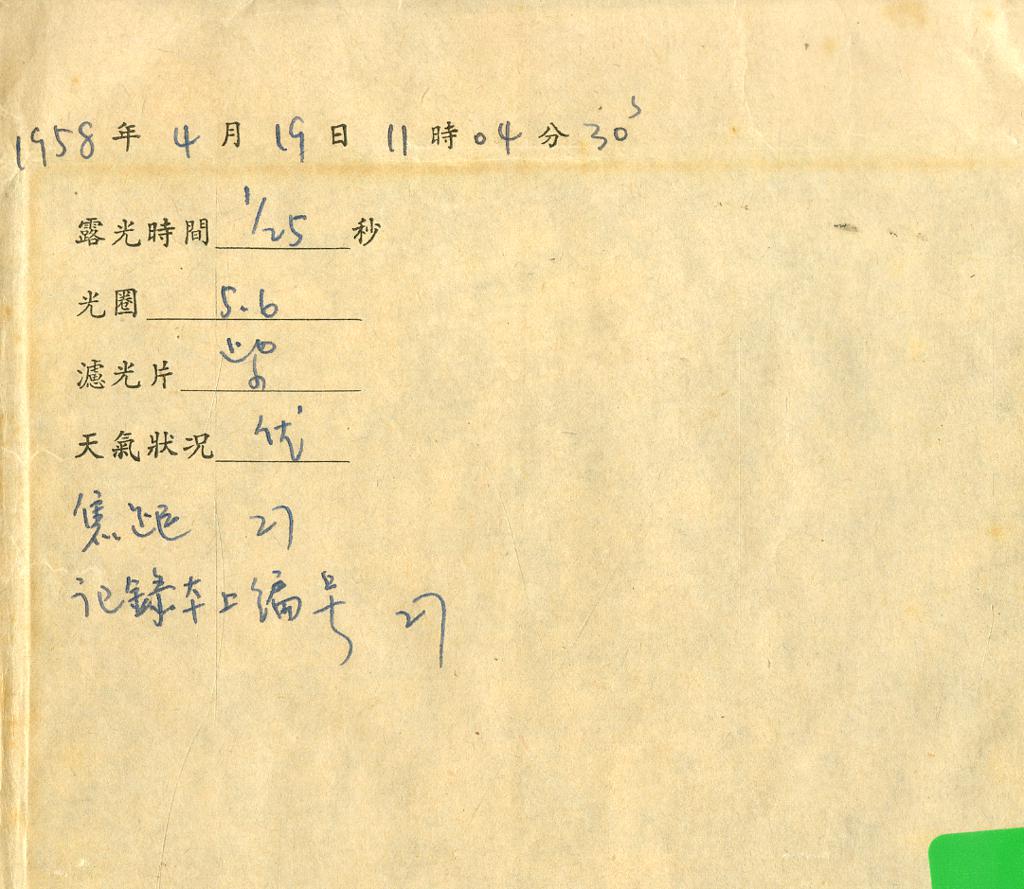 1958年 4月 19日 11時 04分 30s
露光時間 1/25 秒
光圈 5.6
濾光片
天氣狀況 优
焦距 27
记録本上编号 27